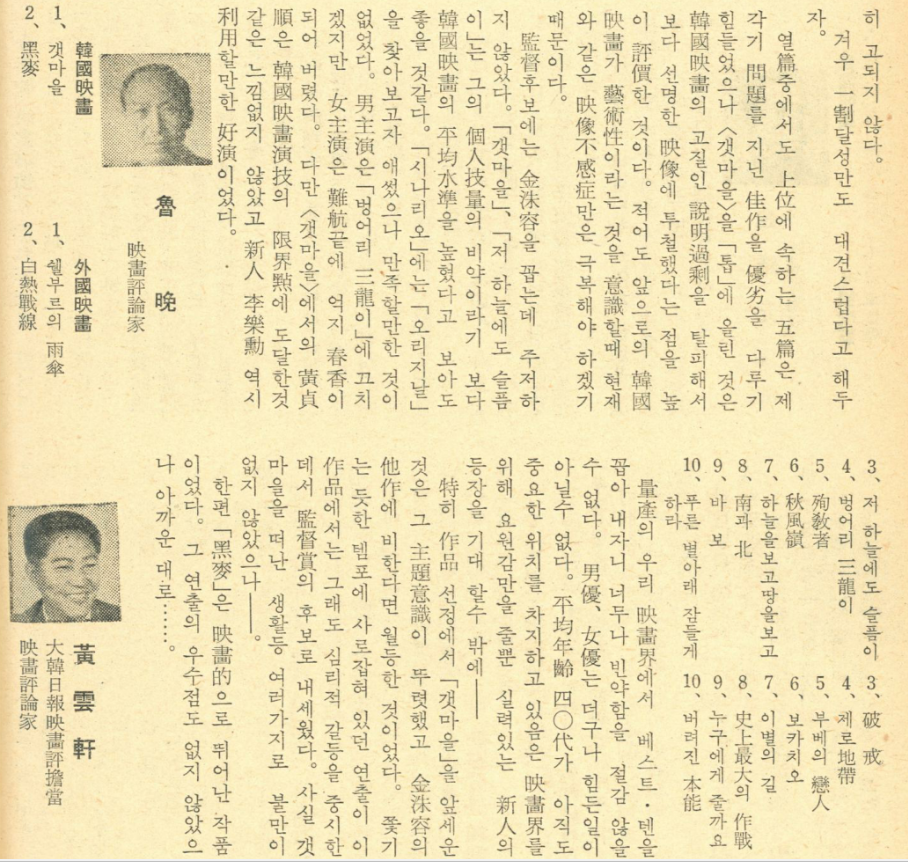 히 고되지 않다.
겨우 一割달성만도 대견스럽다고 해두
자.
열篇중에서도 上位에 속하는 五篇은 제
각기 問題를 지닌 佳作을 優劣을 다루기
힘들었으나 〈갯마을〉을 「톱」에 올린 것은
韓國映畫의 고질인 說明過剩을 탈피해서
보다 선명한 映像에 투철했다는 점을 높
이 評價한 것이다. 적어도 앞으로의 韓國
映畫가 藝術性이라는 것을 意識할때 현재
와 같은 映像不感症만은 극복해야 하겠기
때문이다.
監督후보에는 金洙容을 꼽는데 주저하
지 않았다. 「갯마을」、「저 하늘에도 슬픔
이」는 그의 個人技量의 비약이라기 보다
韓國映畫의 平均水準을 높혔다고 보아도
좋을 것같다. 「시나리오」에는 「오리지날」
을 찾아보고자 애썼으나 만족할만한 것이
없었다. 男主演은 「벙어리 三龍이」에 끄치
겠지만 女主演은 難航끝에 억지 春香이
되어 버렸다. 다만 〈갯마을〉에서의 黃貞
順은 韓國映畫演技의 限界點에 도달한것
같은 느낌없지 않았고 新人 李樂勳 역시
利用할만한 好演이었다.
魯晩
映畫評論家
韓國映畫
1、갯마을
2、黑麥
外國映畫
1、쉘부르의 雨傘
2、白熱戰線
3、저 하늘에도 슬픔이
4、벙어리 三龍이
5、殉敎者
6、秋風嶺
7、하늘을보고땅을보고
8、南과 北
9、바보
10、푸른 별아래 잠들게
하라
3、破戒
4、제로地帶
5、부베의 戀人
6、보카치오
7、이별의 길
8、史上最大의 作戰
9、누구에게 줄까요
10、버려진 本能
量產의 우리 映畫界에서 베스트・텐을
꼽아 내자니 너무나 빈약함을 절감 않을
수 없다. 男優、女優는 더구나 힘든일이
아닐수 없다. 平均年齡 四〇代가 아직도
중요한 위치를 차지하고 있음은 映畫界를
위해 요원감만을 줄뿐 실력있는 新人의
등장을 기대 할수 밖에――
特히 作品 선정에서 「갯마을」을 앞세운
것은 그 主題意識이 뚜렷했고 金洙容의
他作에 비한다면 월등한 것이었다. 쫓기
는 듯한 템포에 사로잡혀 있던 연출이 이
作品에서는 그래도 심리적 갈등을 중시한
데서 監督賞의 후보로 내세웠다. 사실 갯
마을을 떠난 생활등 여러가지로 불만이
없지 않았으나――.
한편 「黑麥」은 映畫的으로 뛰어난 작품
이었다. 그 연출의 우수점도 없지 않았으
나 아까운 대로……。
黃雲軒
大韓日報映畫評擔當
映畫評論家